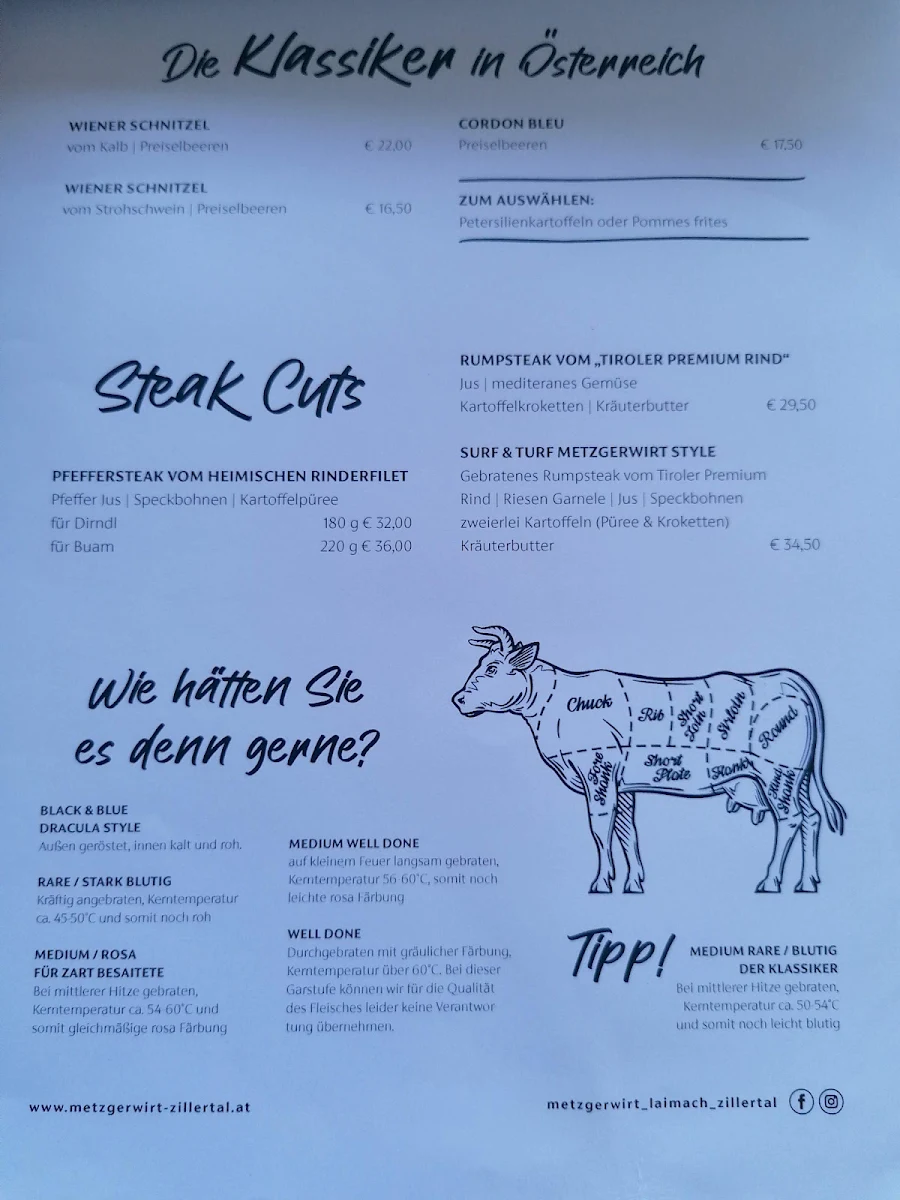 Die Klassiker in Österreich
WIENER SCHNITZEL
vom Kalb | Preiselbeeren € 22,00
WIENER SCHNITZEL
vom Strohschwein | Preiselbeeren € 16,50
CORDON BLEU
Preiselbeeren € 17,50
ZUM AUSWÄHLEN:
Petersilienkartoffeln oder Pommes frites
Steak Cuts
PFEFFERSTEAK VOM HEIMISCHEN RINDERFILET
Pfeffer Jus | Speckbohnen | Kartoffelpüree
für Dirndl 180 g € 32,00
für Buam 220 g € 36,00
RUMPSTEAK VOM „TIROLER PREMIUM RIND“
Jus | mediteranes Gemüse
Kartoffelkroketten | Kräuterbutter € 29,50
SURF & TURF METZGERWIRT STYLE
Gebratenes Rumpsteak vom Tiroler Premium
Rind | Riesen Garnele | Jus | Speckbohnen
zweierlei Kartoffeln (Püree & Kroketten)
Kräuterbutter € 34,50
Wie hätten Sie
es denn gerne?
BLACK & BLUE
DRACULA STYLE
Außen geröstet, innen kalt und roh.
RARE / STARK BLUTIG
Kräftig angebraten, Kerntemperatur
ca. 45-50°C und somit noch roh
MEDIUM / ROSA
FÜR ZART BESAITETE
Bei mittlerer Hitze gebraten,
Kerntemperatur ca. 54-60°C und
somit gleichmäßige rosa Färbung
MEDIUM WELL DONE
auf kleinem Feuer langsam gebraten,
Kerntemperatur 56-60°C, somit noch
leichte rosa Färbung
WELL DONE
Durchgebraten mit gräulicher Färbung,
Kerntemperatur über 60°C. Bei dieser
Garstufe können wir für die Qualität
des Fleisches leider keine Verantwor
tung übernehmen.
Chuck
Rib
Short
Loin
Sirloin
Round
Fore
Shank
Short
Plate
Flank
Hind
Shank
Tipp!
MEDIUM RARE / BLUTIG
DER KLASSIKER
Bei mittlerer Hitze gebraten,
Kerntemperatur ca. 50-54°C
und somit noch leicht blutig
www.metzgerwirt-zillertal.at
metzgerwirt_laimach_zillertal